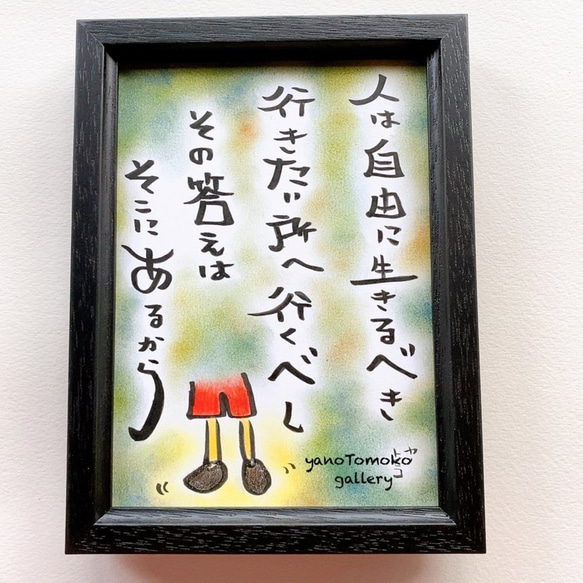 人は自由に生きるべき
行きたい所へ行くべし
その答えは
そこにあるから
yanoTomoko
gallery
ヤノトモコ